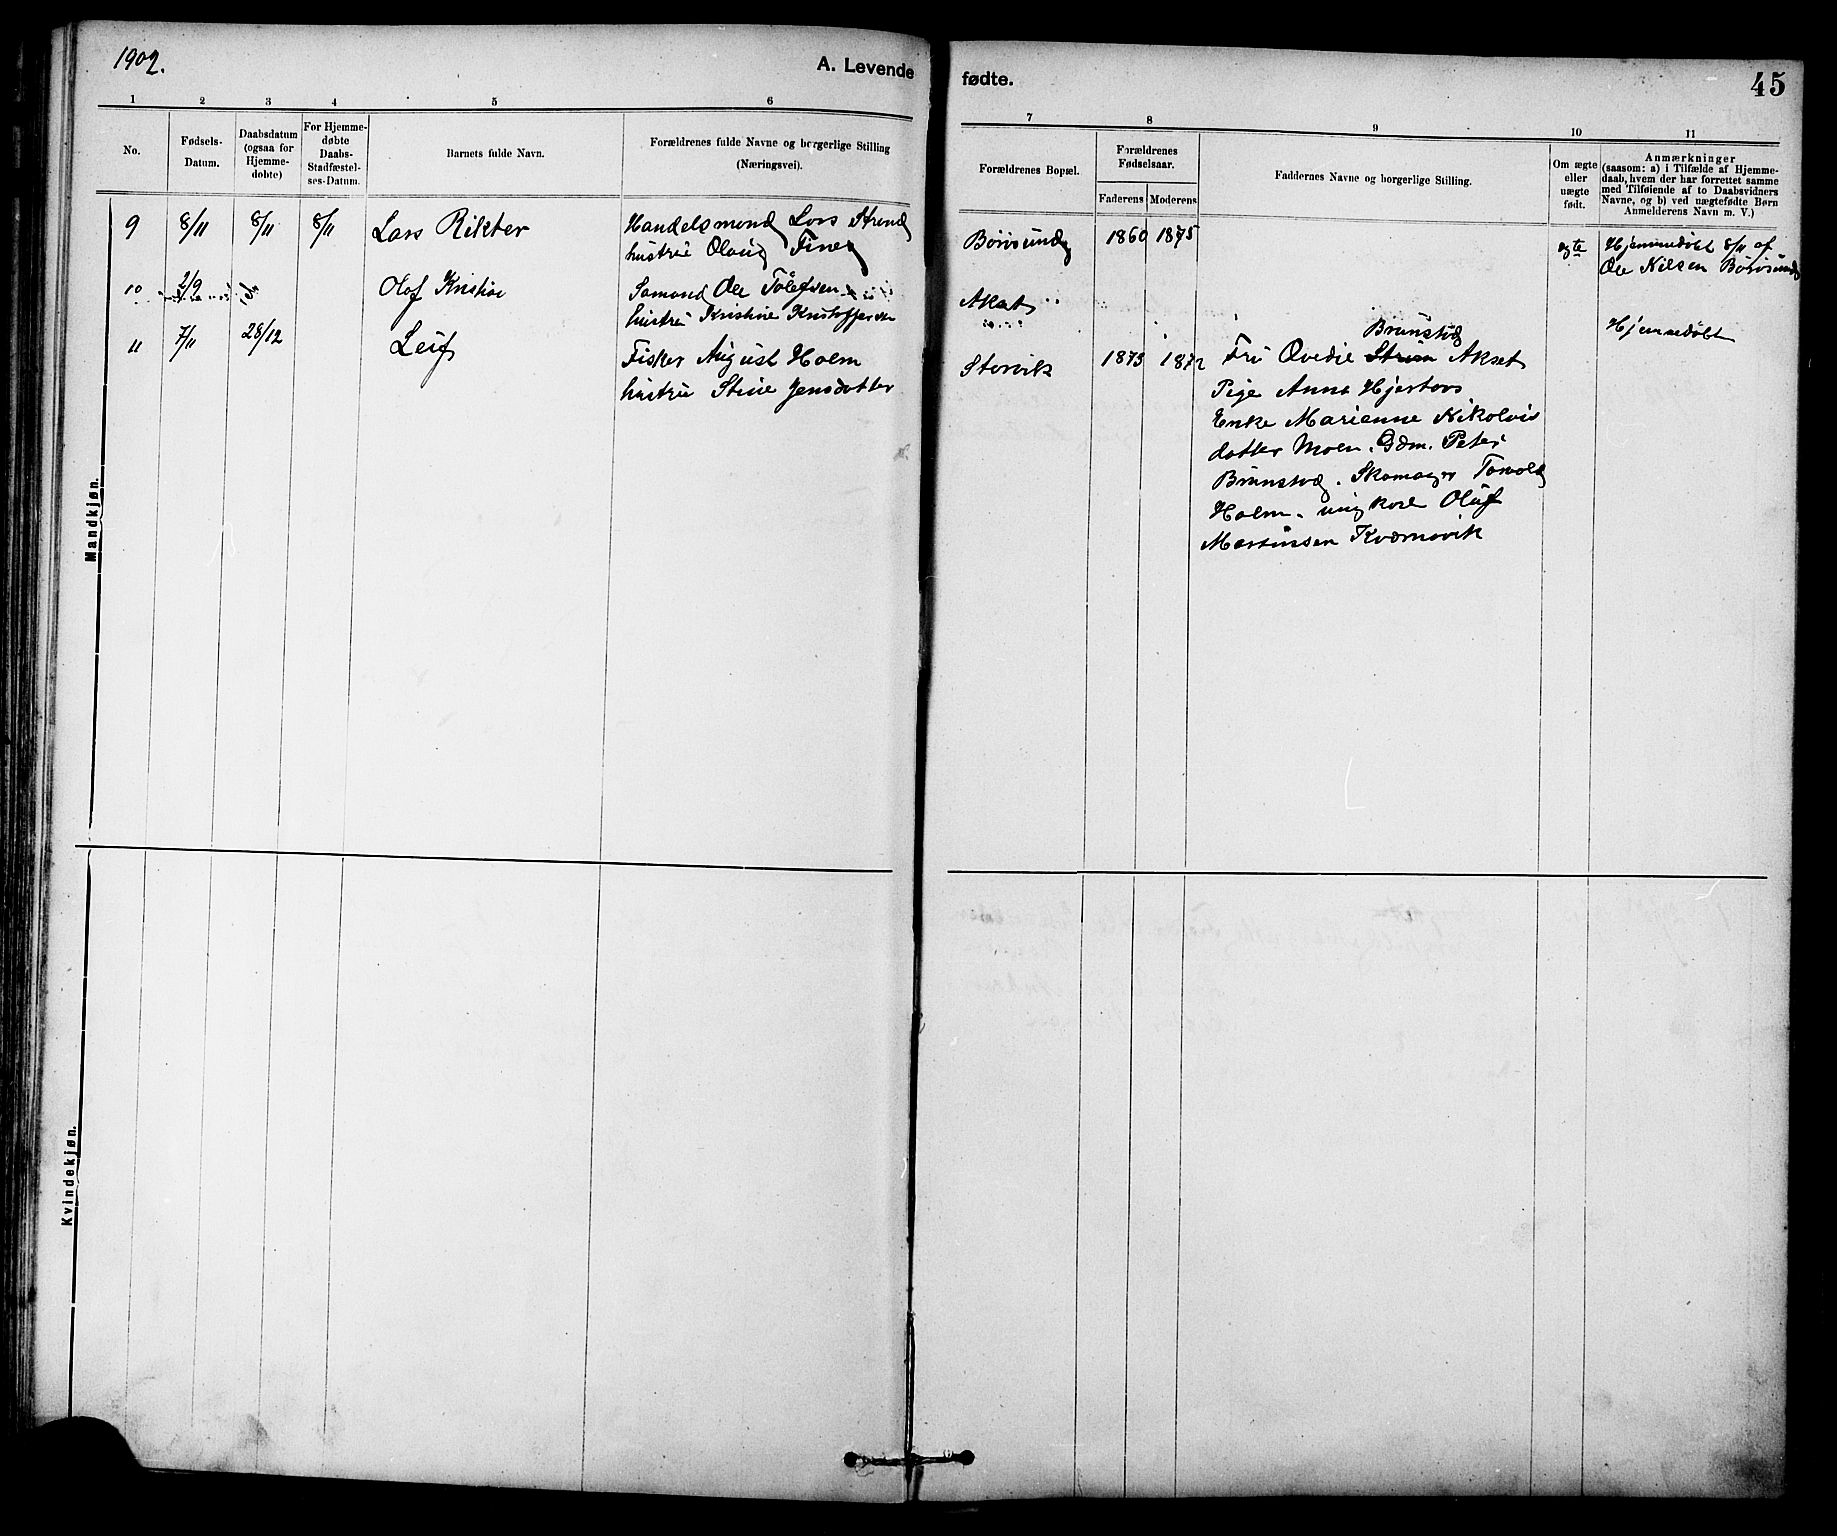 1902.
A. Levende fødte.
45
1 2 3 4 5 6 7 8 9 10 11
No.
Fødsels-
Datum.
Daabsdatum
(ogsaa for
Hjemme-
døbte)
For Hjemme-
døbte
Daabs-
Stadfæstel-
ses-Datum.
Barnets fulde Navn.
Forældrenes fulde Navne og borgerlige Stilling
(Næringsvei).
Forældrenes Bopæl.
Forældrenes
Fødselsaar.
Faderens Moderens
Faddernes Navne og borgerlige Stilling.
Om ægte
eller
uægte
født.
Anmærkninger
(saasom: a) i Tilfælde af Hjemme-
daab, hvem der har forrettet samme
med Tilføiende af to Daabsvidners
Navne, og b) ved uægtefødte Børn
Anmelderens Navn m. V.)
Mandkjøn.
9 8/11 8/11 8/11 Lars Rikter
Handelsmand Lars Strand
hustru Olaug Fine
Børøsund 1860 1875
ægte
Hjemmedøbt 8/11 af
Ole Nilsen Børøsund
10 2/9 Olaf Kristian
Ole Tølefsen
hustru Kristine Kristoffersen
Akset
11 7/11 28/12 Leif
Fisker August Holm
hustru Stine Jensdatter
Storvik 1873 1872
Brunstad
Fru Ovedie Strøm Akset
Pige Anna Hjertaas
Enke Marianne Nikolais
datter Moen. Gdm. Peter
Brunstad. Skomager Torvald
Holm. ungkarl Oluf
Martinsen Kværnøvik
Hjemmedøbt
Kvindekjøn.